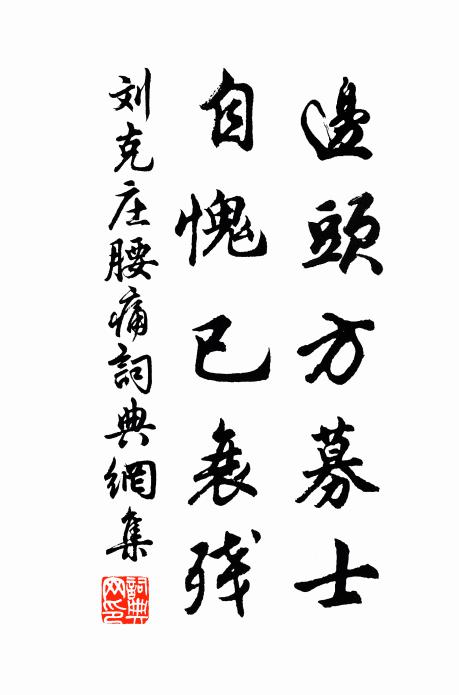 邊頭方募士
自愧已衰残
刘克庄腰痛詞典網集
詞典网印